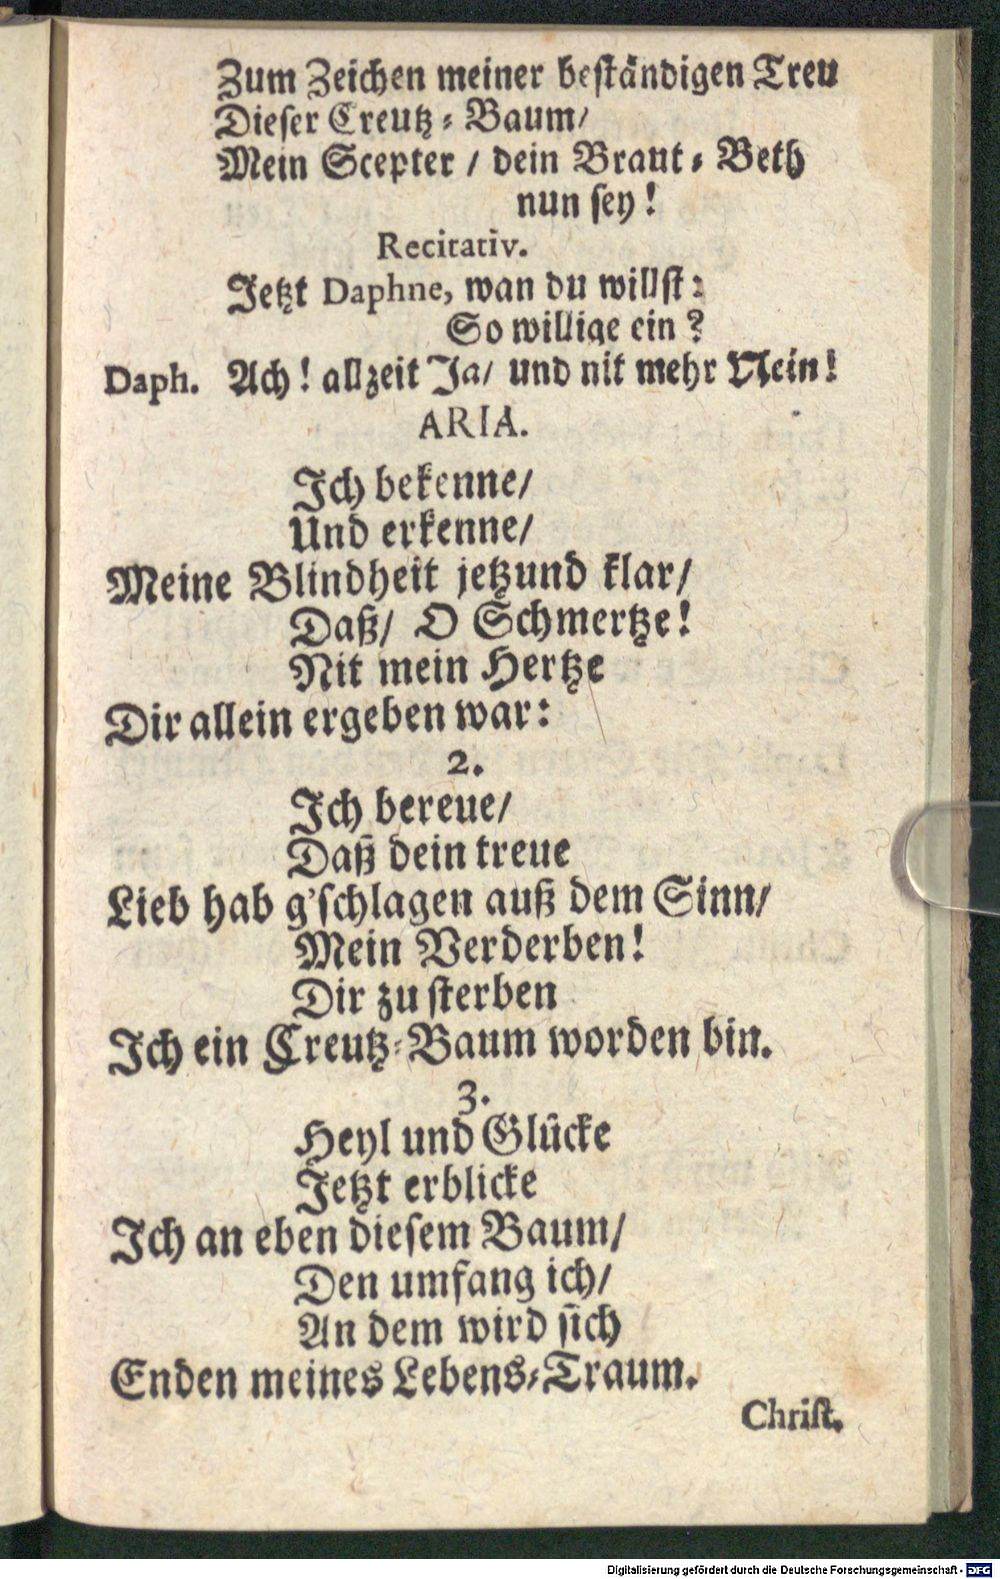 Zum Zeichen meiner beständigen Treu
Dieser Creutz-Baum/
Mein Scepter / dein Braut-Beth
nun sey!
Recitativ.
Jetzt Daphne, wan du willst:
So willige ein?
Daph. Ach! allzeit Ja/ und nit mehr Nein!
ARIA.
Ich bekenne/
Und erkenne/
Meine Blindheit jetzund klar/
Daß/ O Schmertze!
Nit mein Hertze
Dir allein ergeben war:
2.
Ich bereue/
Daß dein treue
Lieb hab g'schlagen auß dem Sinn/
Mein Verderben!
Dir zu sterben
Ich ein Creutz-Baum worden bin.
3.
Heyl und Glücke
Jetzt erblicke
Ich an eben diesem Baum/
Den umfang ich/
An dem wird sich
Enden meines Lebens-Traum.
Christ.
Digitalisierung gefördert durch die Deutsche Forschungsgemeinschaft - DFG